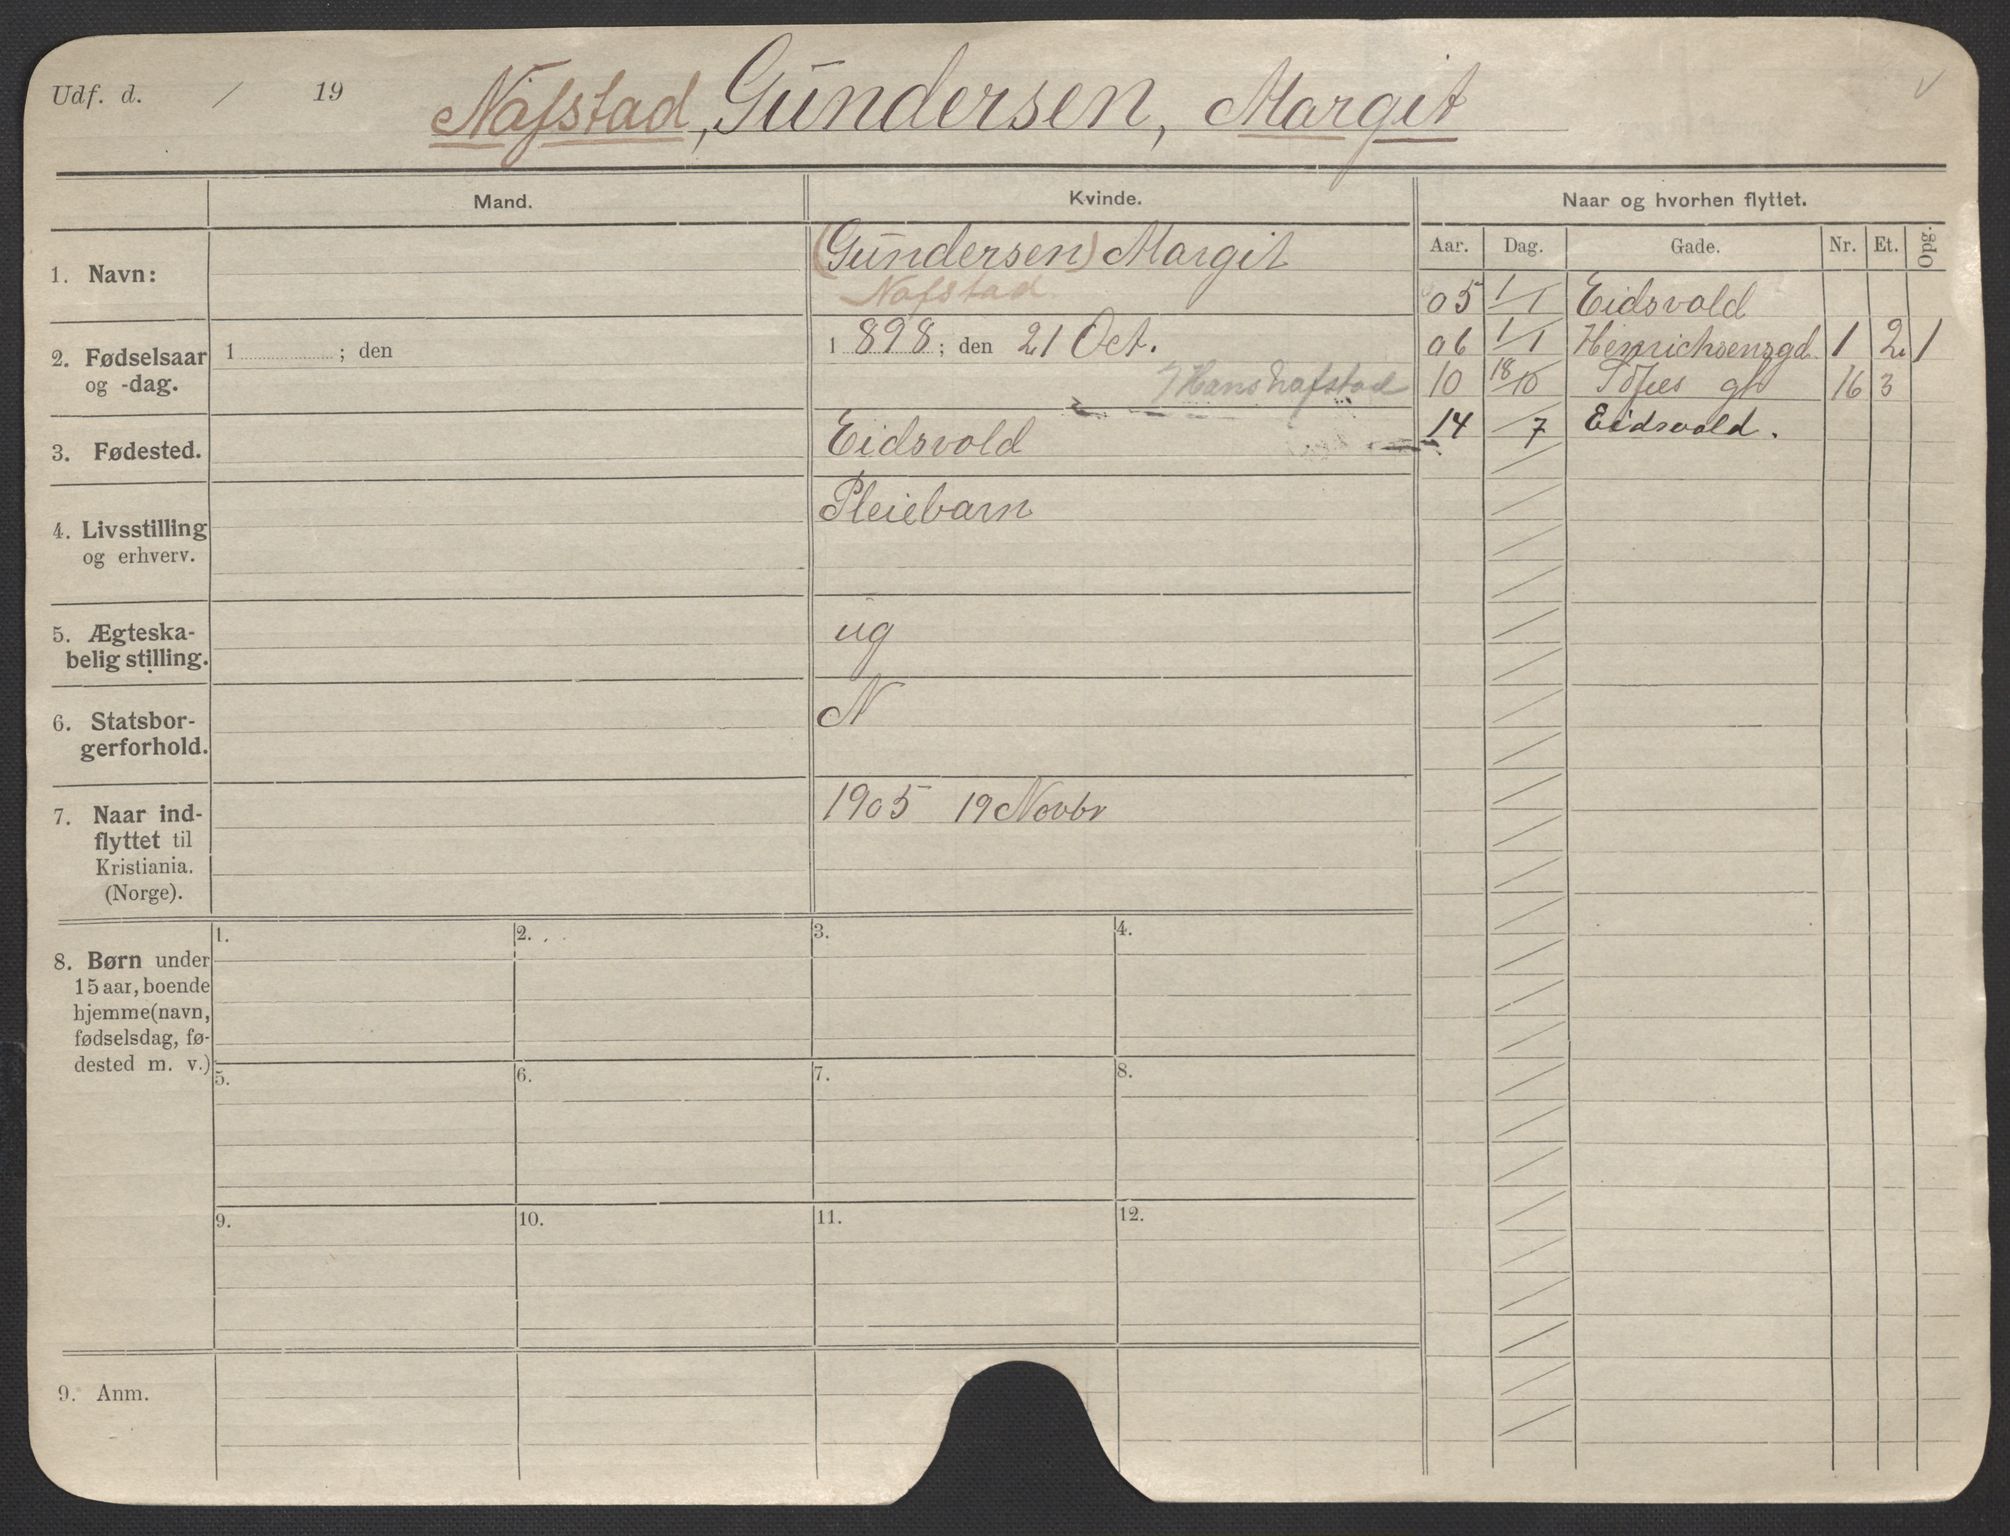 Udf. d. / 19
Nafstad, Gundersen, Margit
Mand.
Kvinde.
Naar og hvorhen flyttet.
Aar. Dag. Gade. Nr. Et. Opg.
1. Navn:
(Gundersen) Margit
Nafstad
05 1/1 Eidsvold
06 1/1 Henrichsensgd. 1 2. 1
10 18/10 Sofies gt 16 3
14 /7 Eidsvold.
2. Fødselsaar
og -dag.
1 ; den
1 898; den 21 Oct.
Hans Nafstad
3. Fødested.
Eidsvold
4. Livsstilling
og erhverv.
Pleiebarn
5. Ægteska-
belig stilling.
ug
6. Statsbor-
gerforhold.
N
7. Naar ind-
flyttet til
Kristiania.
(Norge).
1905 19 Novbr
8. Børn under
15 aar, boende
hjemme (navn,
fødselsdag, fø-
dested m. v.)
1. 2. 3. 4.
5. 6. 7. 8.
9. 10. 11. 12.
9. Anm.